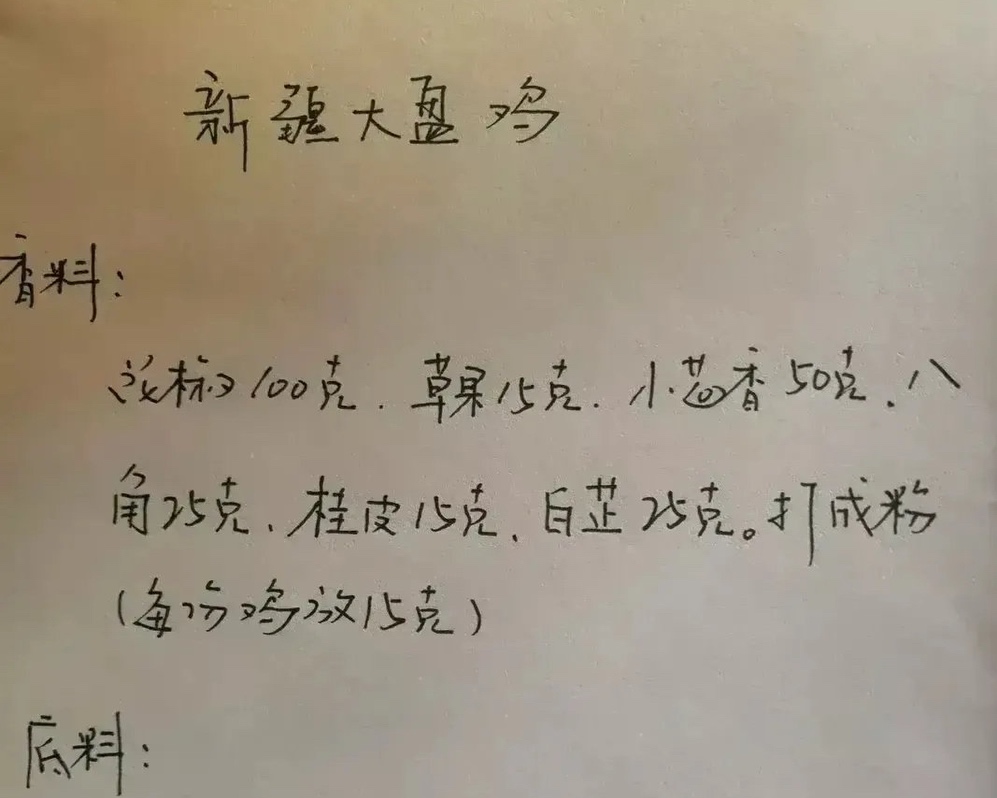 新疆大盘鸡
香料：
花椒100克. 草果15克. 小茴香50克. 八
角25克、桂皮15克、白芷25克。打成粉
(每份鸡放15克)
底料：